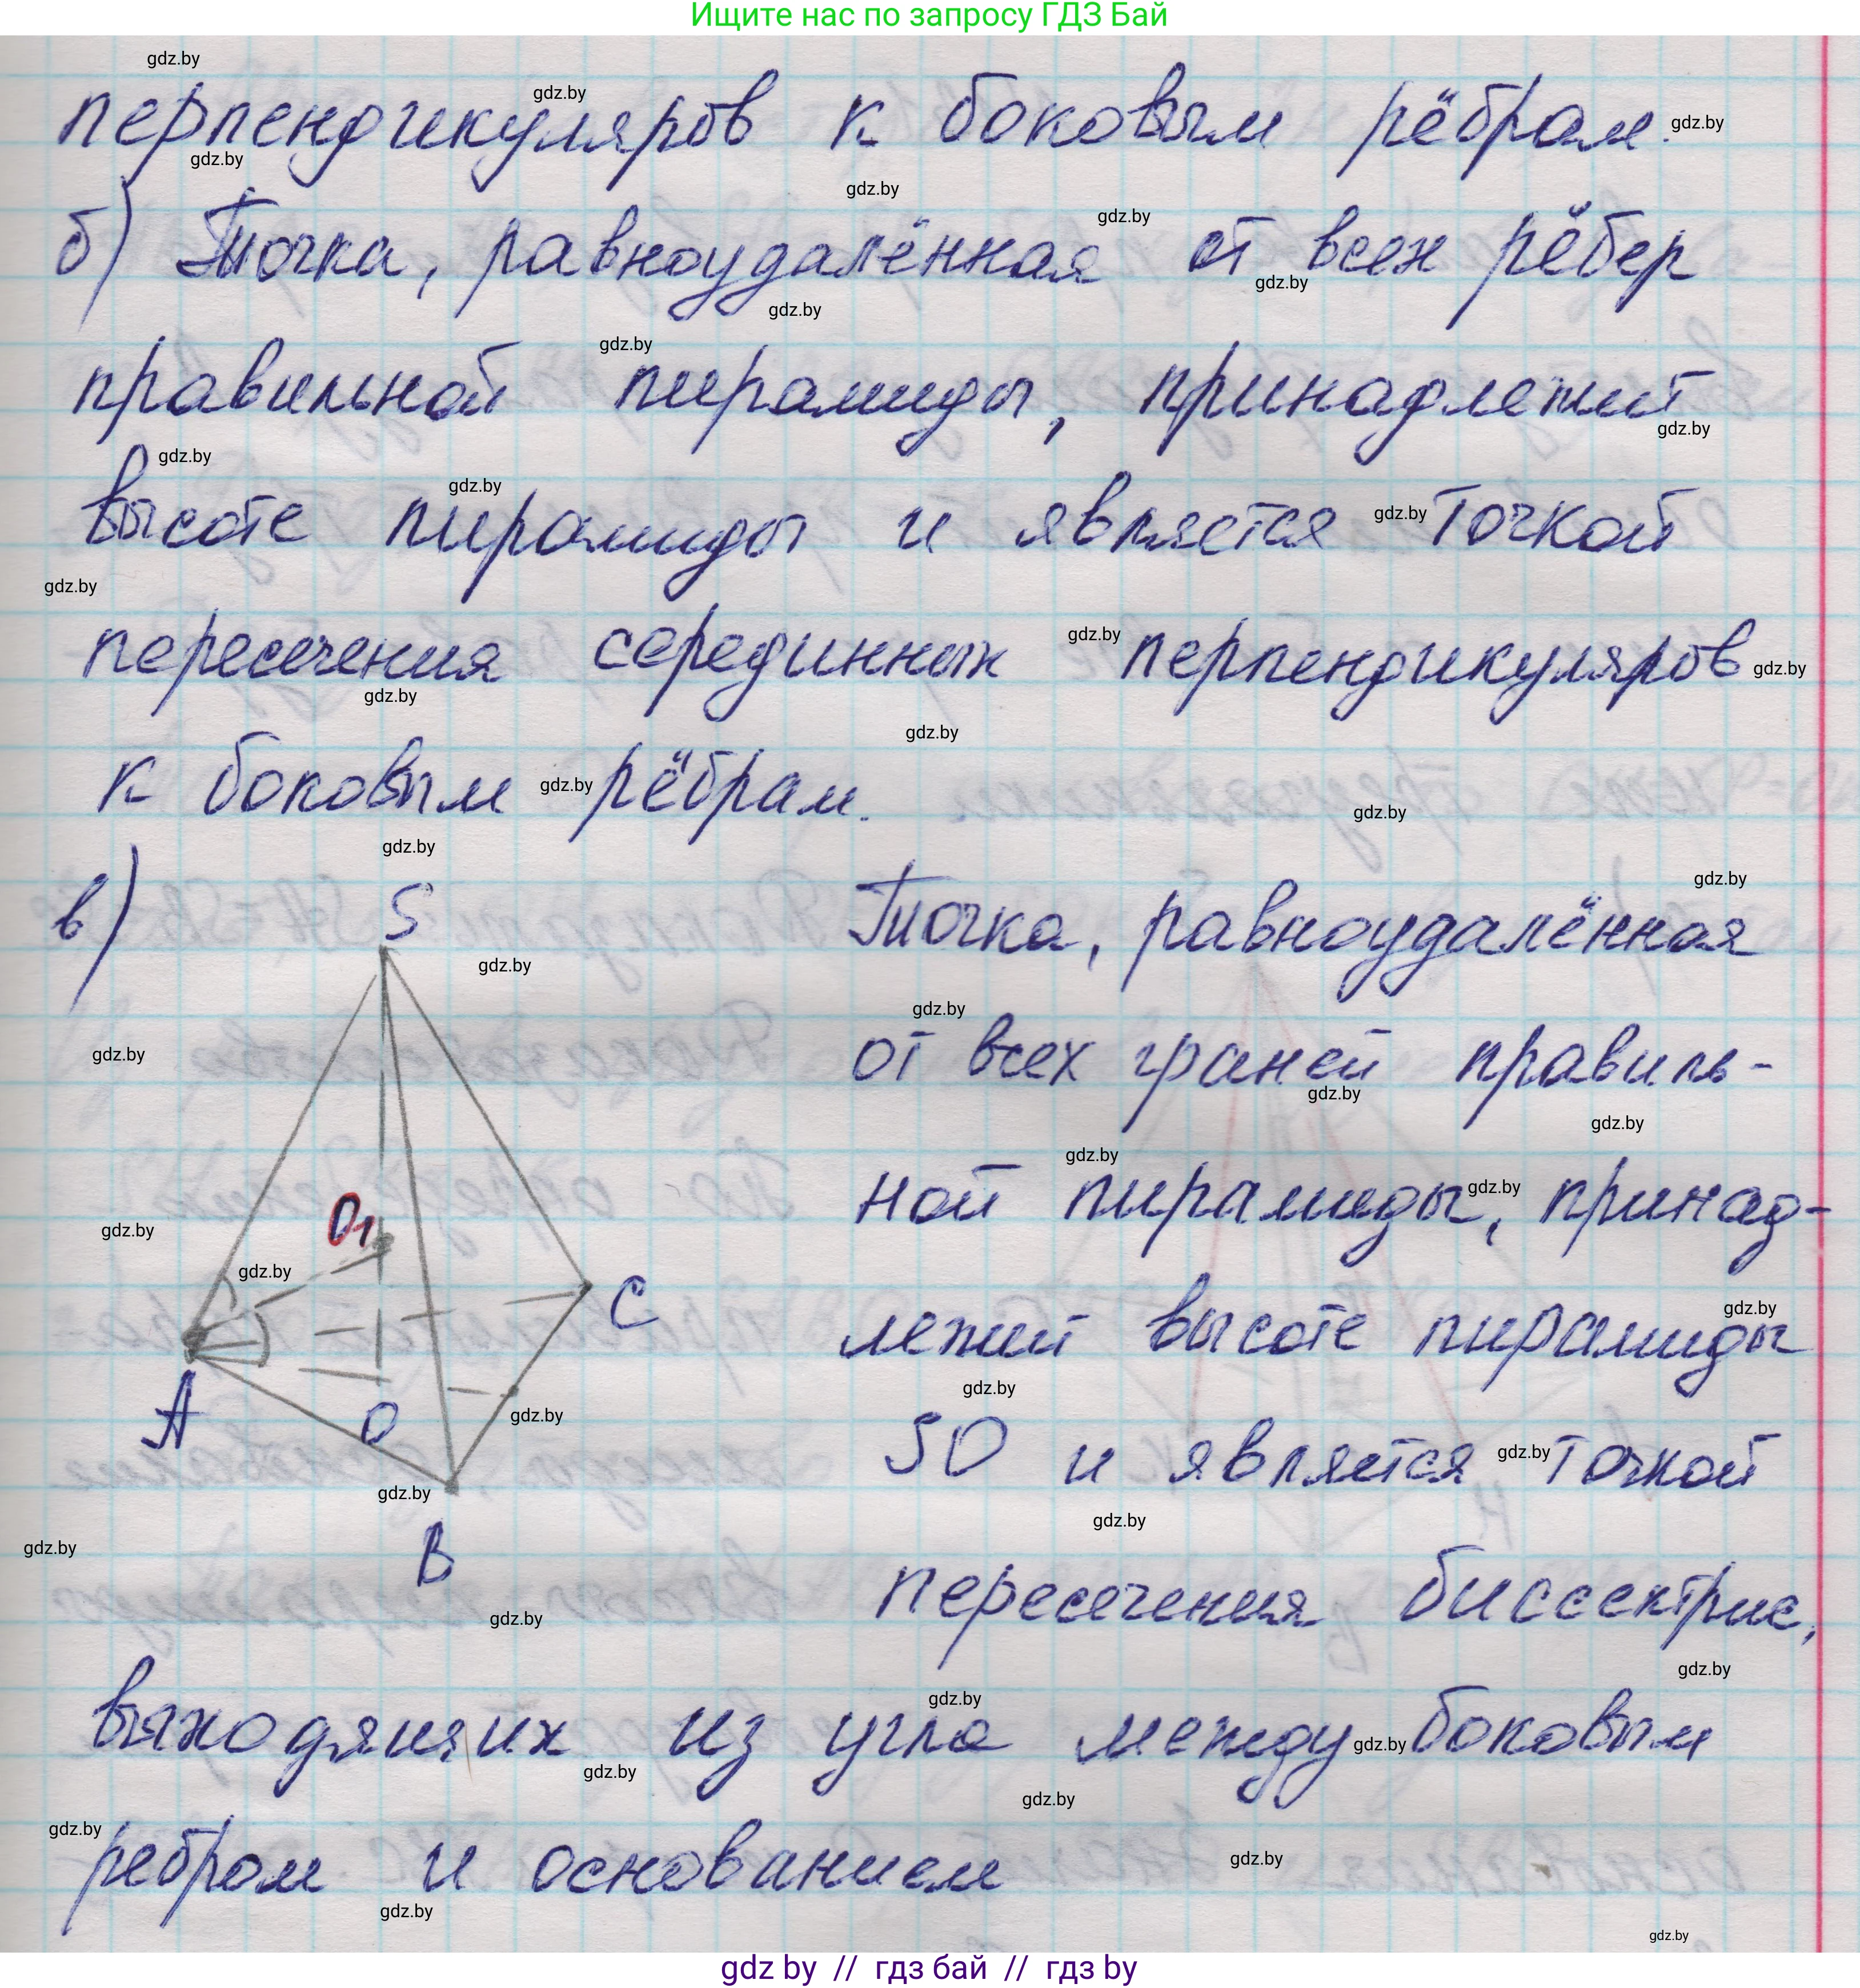 Ищите нас по запросу ГДЗ Бай
gdz.by
перпендикуляров к боковым рёбрам.
б) Точка, равноудалённая от всех рёбер
правильной пирамиды, принадлежит
высоте пирамиды и является точкой
пересечения серединных перпендикуляров
к боковым рёбрам.
в)
S
O₁
C
A
O
B
Точка, равноудалённая
от всех граней правиль-
ной пирамиды, принад-
лежит высоте пирамиды
SO и является точкой
пересечения биссектрис,
выходящих из угла между боковым
ребром и основанием
gdz by // гдз бай // гдз by